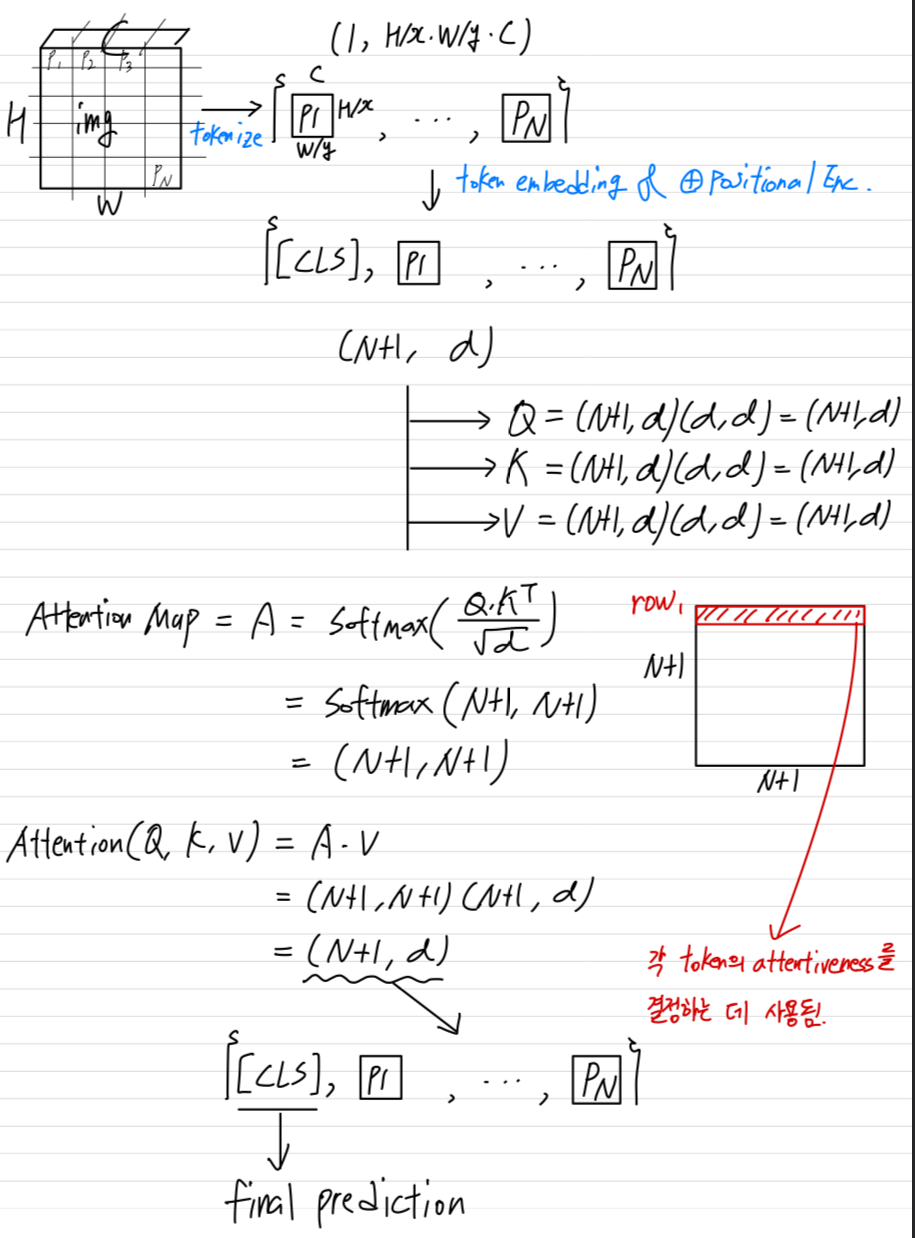 C (1, H/x·W/y·C)
P1 P2 P3
H img tokenize { P1 , ··· , PN }
C H/x W/y
PN
W
token embedding & ⊕ Positional Enc.
{ [CLS], P1 , ··· , PN }
(N+1, d)
Q = (N+1, d)(d, d) = (N+1, d)
K = (N+1, d)(d, d) = (N+1, d)
V = (N+1, d)(d, d) = (N+1, d)
Attention Map = A = Softmax(Q·K^T/√d)
= Softmax (N+1, N+1)
= (N+1, N+1)
row1
N+1
N+1
Attention(Q, K, V) = A · V
= (N+1, N+1) (N+1, d)
= (N+1, d)
각 token의 attentiveness를
결정하는 데 사용됨.
{ [CLS], P1 , ··· , PN }
final prediction